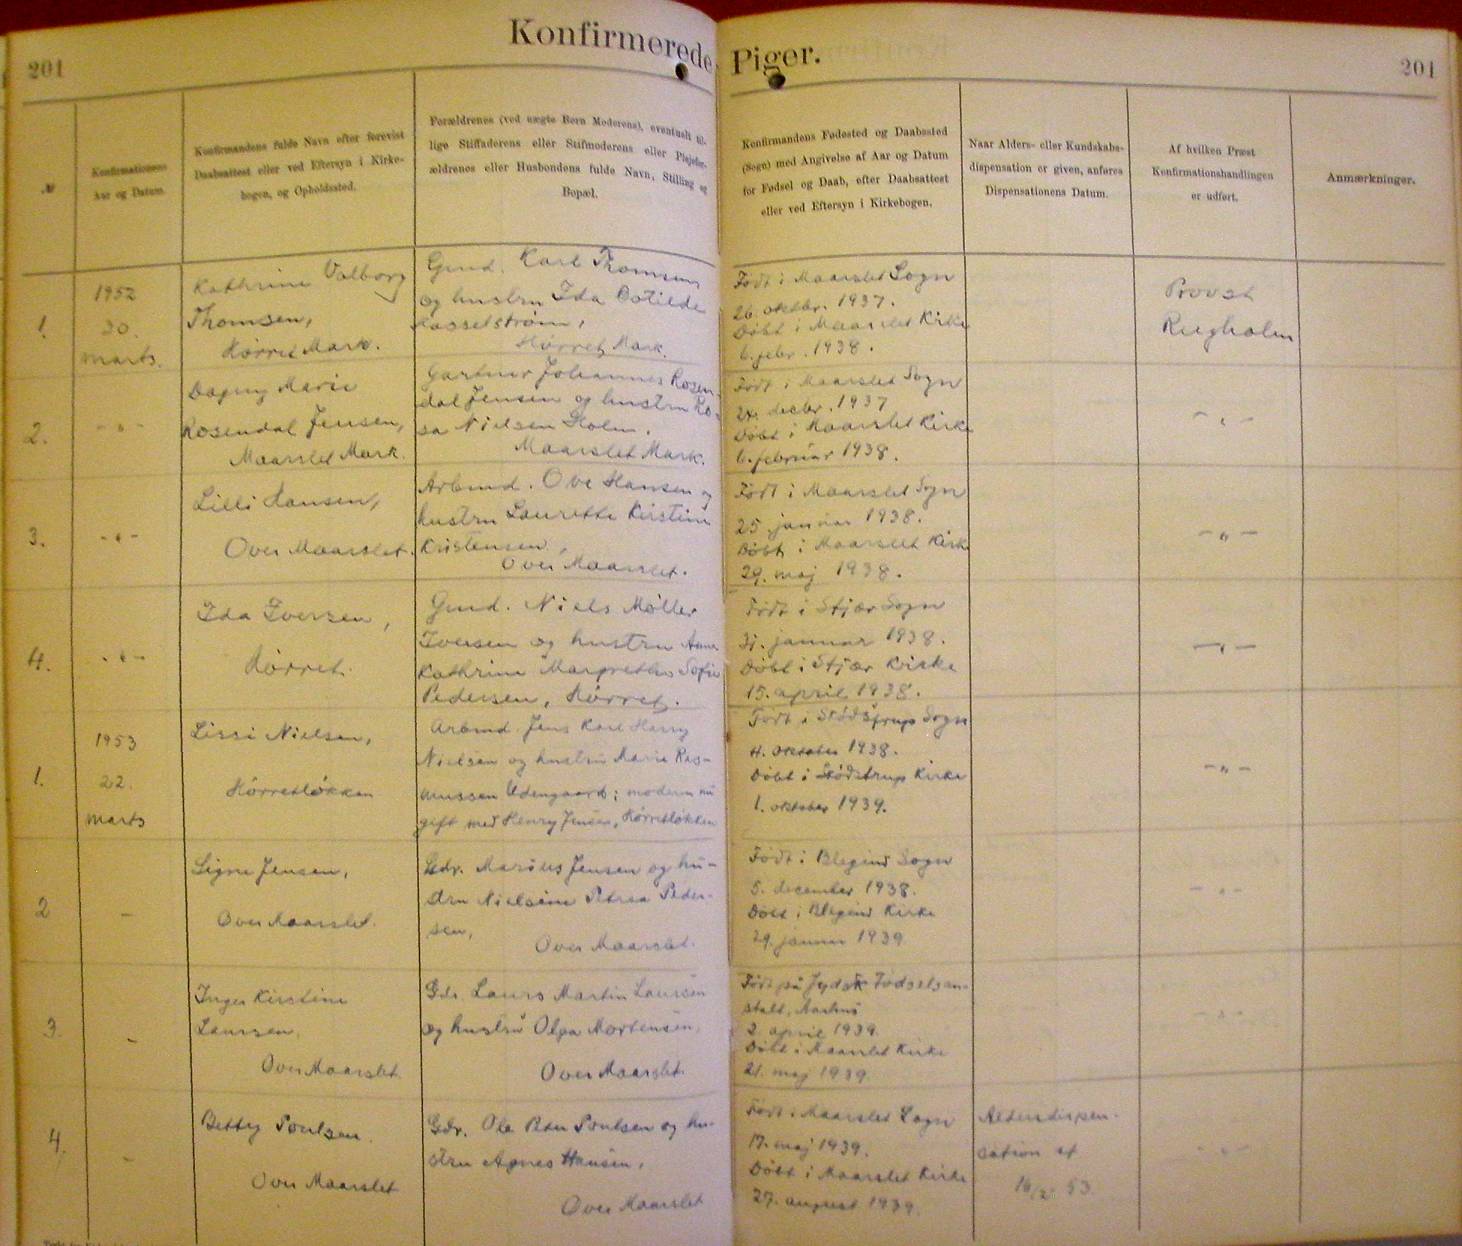 201
Konfirmerede Piger.
201
№
Konfirmationens
Aar og Datum.
Konfirmandens fulde Navn efter forevist
Daabsattest eller ved Eftersyn i Kirke-
bogen, og Opholdssted.
Forældrenes (ved uægte Børn Moderens), eventuelt til-
lige Stiffaderens eller Stifmoderens eller Plejefor-
ældrenes eller Husbondens fulde Navn, Stilling og
Bopæl.
Konfirmandens Fødested og Daabssted
(Sogn) med Angivelse af Aar og Datum
for Fødsel og Daab, efter Daabsattest
eller ved Eftersyn i Kirkebogen.
Naar Alders- eller Kundskabs-
dispensation er given, anføres
Dispensationens Datum.
Af hvilken Præst
Konfirmationshandlingen
er udført.
Anmærkninger.
1.
1952
30.
marts.
Kathrine Valborg
Thomsen,
Hørret Mark.
Gmd. Karl Thomsen
og hustru Ida Botilde
Kasselstrøm,
Hørret Mark.
Født i Maarslet Sogn
26. oktbr. 1937.
Døbt i Maarslet Kirke
6. febr. 1938.
Provst
Riegholm
2.
- " -
Dagny Marie
Rosendal Jensen,
Maarslet Mark.
Gartner Johannes Rosen-
dal Jensen og hustru Ro-
sa Nielsen Holm.
Maarslet Mark.
Født i Maarslet Sogn
24. decbr. 1937
Døbt i Maarslet Kirke
6. februar 1938.
- " -
3.
- " -
Lilli Hansen,
Over Maarslet.
Arbmd. Ove Hansen og
hustru Laurette Kirstine
Kristensen,
Over Maarslet.
Født i Maarslet Sogn
25 januar 1938.
Døbt i Maarslet Kirke
29. maj 1938.
- " -
4.
- " -
Ida Iversen,
Hørret.
Gmd. Niels Møller
Iversen og hustru Anna
Kathrine Margrethe Sofie
Pedersen, Hørret.
Født i Stjær Sogn
31. januar 1938.
Døbt i Stjær Kirke
15. april 1938.
- " -
1.
1953
22.
marts
Lissi Nielsen,
Hørretløkken
Arbmd. Jens Karl Harry
Nielsen og hustru Marie Ras-
mussen Udengaard; moderen nu
gift med Henry Jensen, Hørretløkken
Født i Stødstrup Sogn
4. oktober 1938.
Døbt i Stødstrup Kirke
1. oktober 1939.
- " -
2
-
Signe Jensen,
Over Maarslet.
Gdr. Marius Jensen og hu-
stru Nielsine Petrea Peder-
sen,
Over Maarslet.
Født i Blegind Sogn
5. december 1938.
Døbt i Blegind Kirke
29. januar 1939
- " -
3.
-
Inger Kirstine
Laursen,
Over Maarslet.
Gdr. Laurs Martin Laursen
og hustru Olga Mortensen,
Over Maarslet.
Født på Jydsk Fødselsan-
stalt, Aarhus
2. april 1939.
Døbt i Maarslet Kirke
21. maj 1939.
- " -
4.
-
Betty Poulsen.
Over Maarslet
Gdr. Ole Peter Poulsen og hu-
stru Agnes Hansen,
Over Maarslet
Født i Maarslet Sogn
17. maj 1939.
Døbt i Maarslet Kirke
27. august 1939.
Aldersdispen-
sation af
16/2 53
- " -